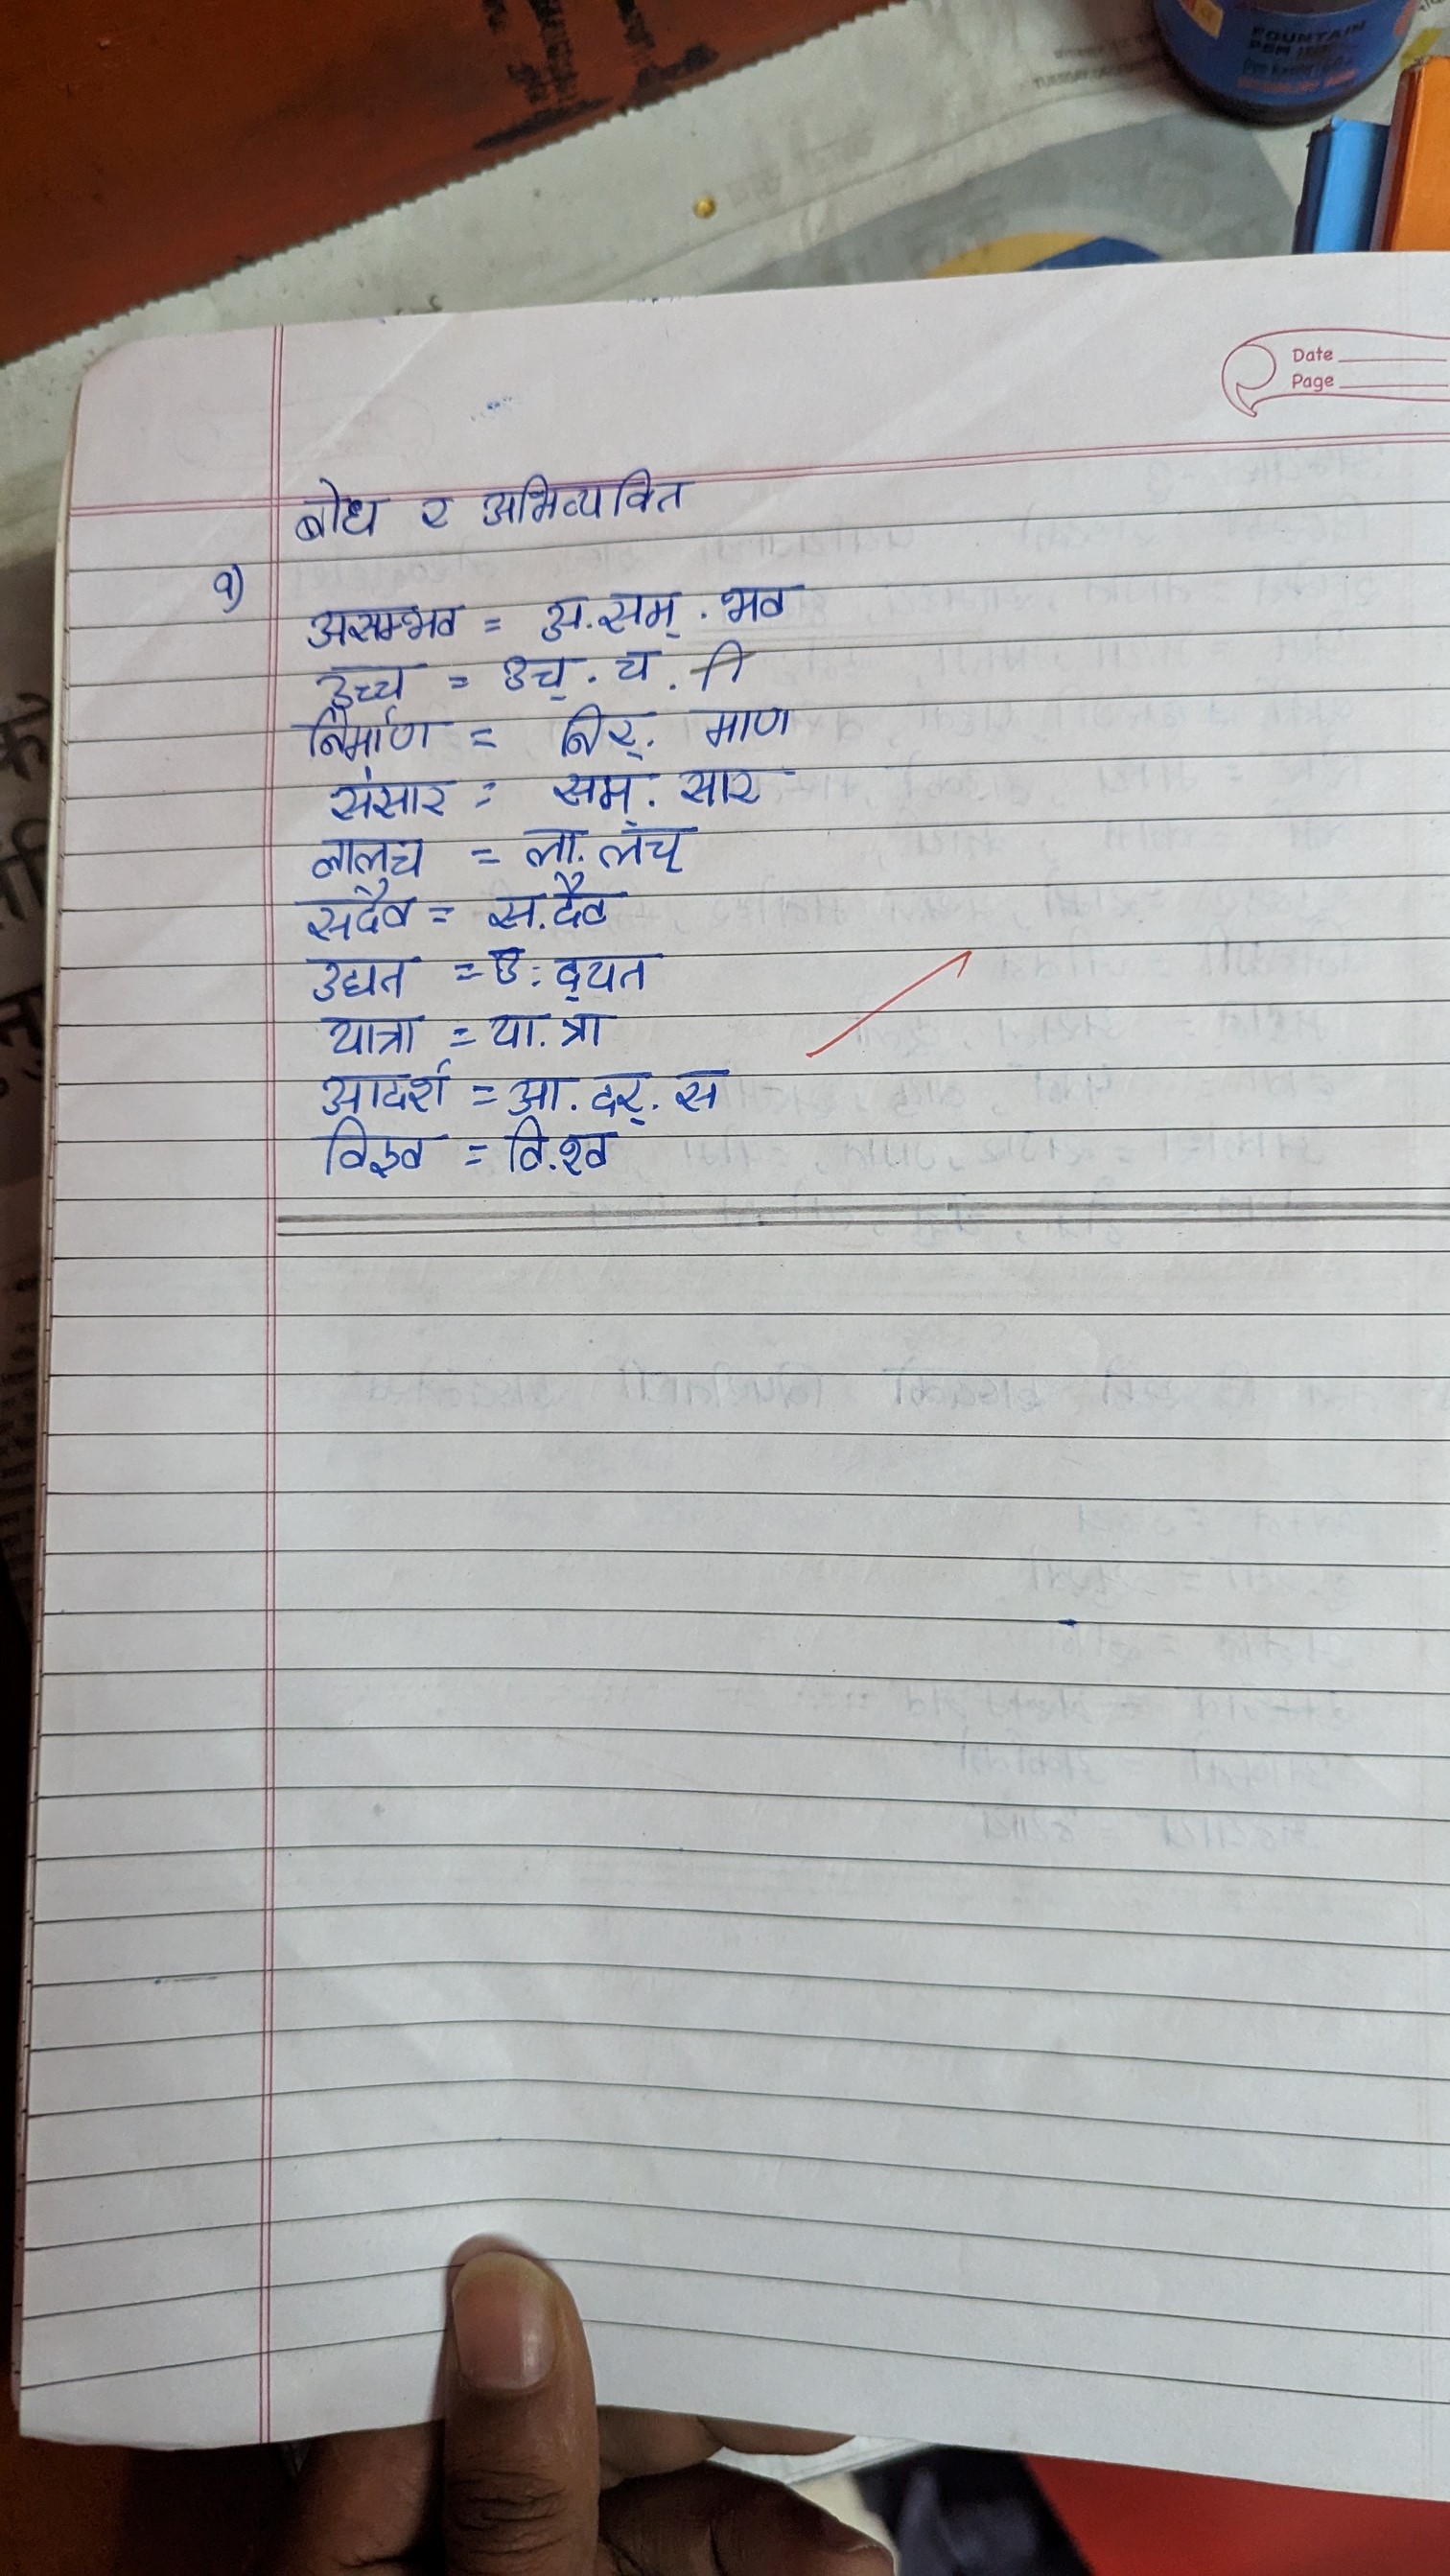 FOUNTAIN
PEN INK
Date
Page
बोध र अभिव्यक्ति
१)
असम्भव = अ.सम्.भव
उच्च = उच्.च.
निर्माण = निर्. माण
संसार = सम्. सार
लालच = ला.लच्
सदैव = स.दैव
उद्यत = उ.द्यत
यात्रा = या.त्रा
आदर्श = आ.दर्.स
विश्व = वि.श्व